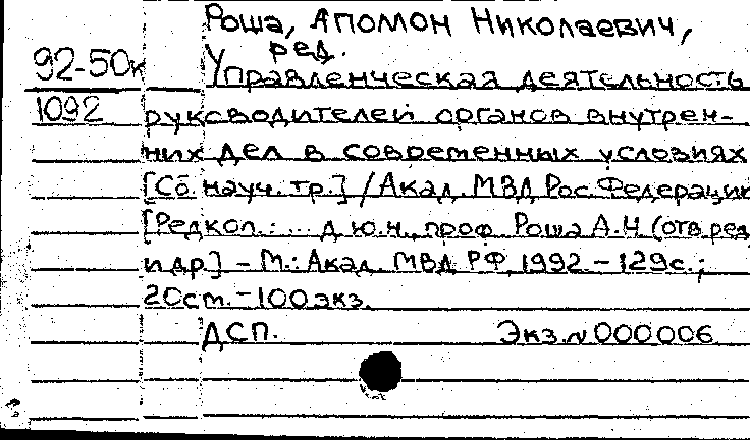 Роша, Апомон Николаевич,
ред.
92-50к Управленческая деятельность
1092 руководителей органов внутрен-
них дел в современных условиях
[Сб. науч. тр.] / Акад. МВД Рос. Федерации
[Редкол.: ... д.ю.н., проф. Роша А.Н (отв.ред
и др.] – М.: Акад. МВД РФ, 1992 – 129с.;
20см. – 100экз.
ДСП. Экз. N 000006